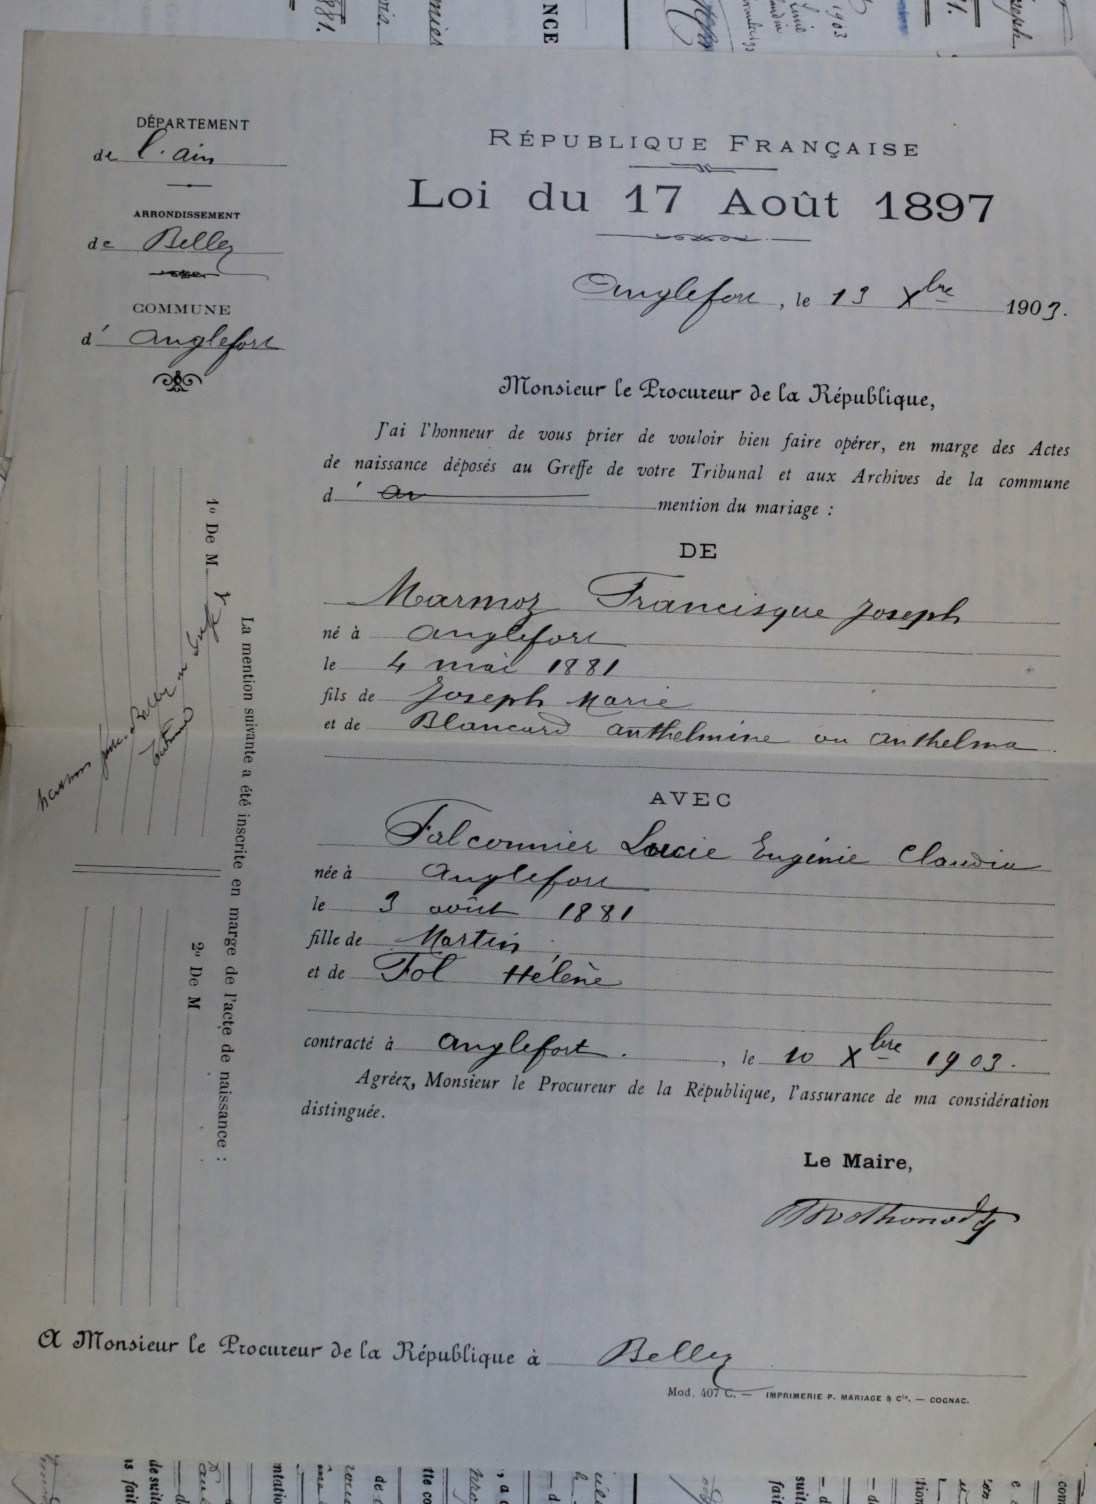 DÉPARTEMENT
de l'ain
ARRONDISSEMENT
de Belley
COMMUNE
d' Anglefort
RÉPUBLIQUE FRANÇAISE
Loi du 17 Août 1897
Anglefort, le 13 Xbre 1903.
Monsieur le Procureur de la République,
J'ai l'honneur de vous prier de vouloir bien faire opérer, en marge des Actes
de naissance déposés au Greffe de votre Tribunal et aux Archives de la commune
d' mention du mariage :
DE
Marmoz Francisque Joseph
né à Anglefort
le 4 mai 1881
fils de Joseph Marie
et de Blancard Anthelmine ou Anthelma
AVEC
Falconnier Lucie Eugénie Claudia
née à Anglefort
le 3 août 1881
fille de Martin
et de Fol Hélène
contracté à Anglefort. , le 10 Xbre 1903.
Agréez, Monsieur le Procureur de la République, l'assurance de ma considération
distinguée.
Le Maire,
La mention suivante a été inscrite en marge de l'acte de naissance :
1º De M
2º De M
A Monsieur le Procureur de la République à Belley
Mod. 407 C. — IMPRIMERIE P. MARIAGE & Cie. — COGNAC.